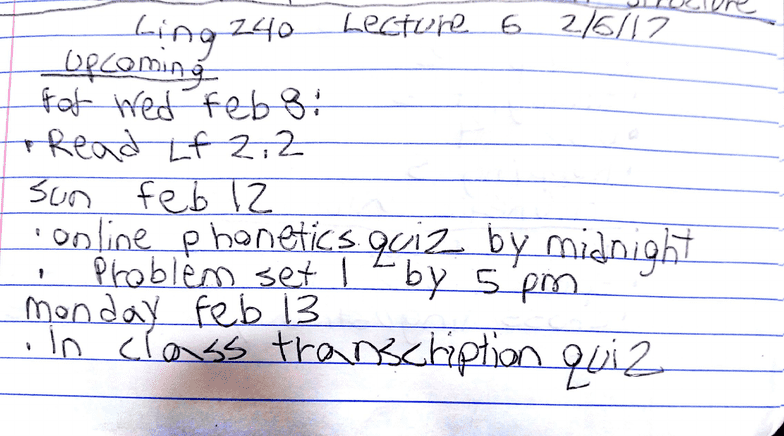 structure
Ling 240 Lecture 6 2/6/17
Upcoming
For Wed Feb 8:
• Read LF 2.2
Sun Feb 12
• online phonetics quiz by midnight
• Problem set 1 by 5 pm
monday Feb 13
• In class transcription quiz